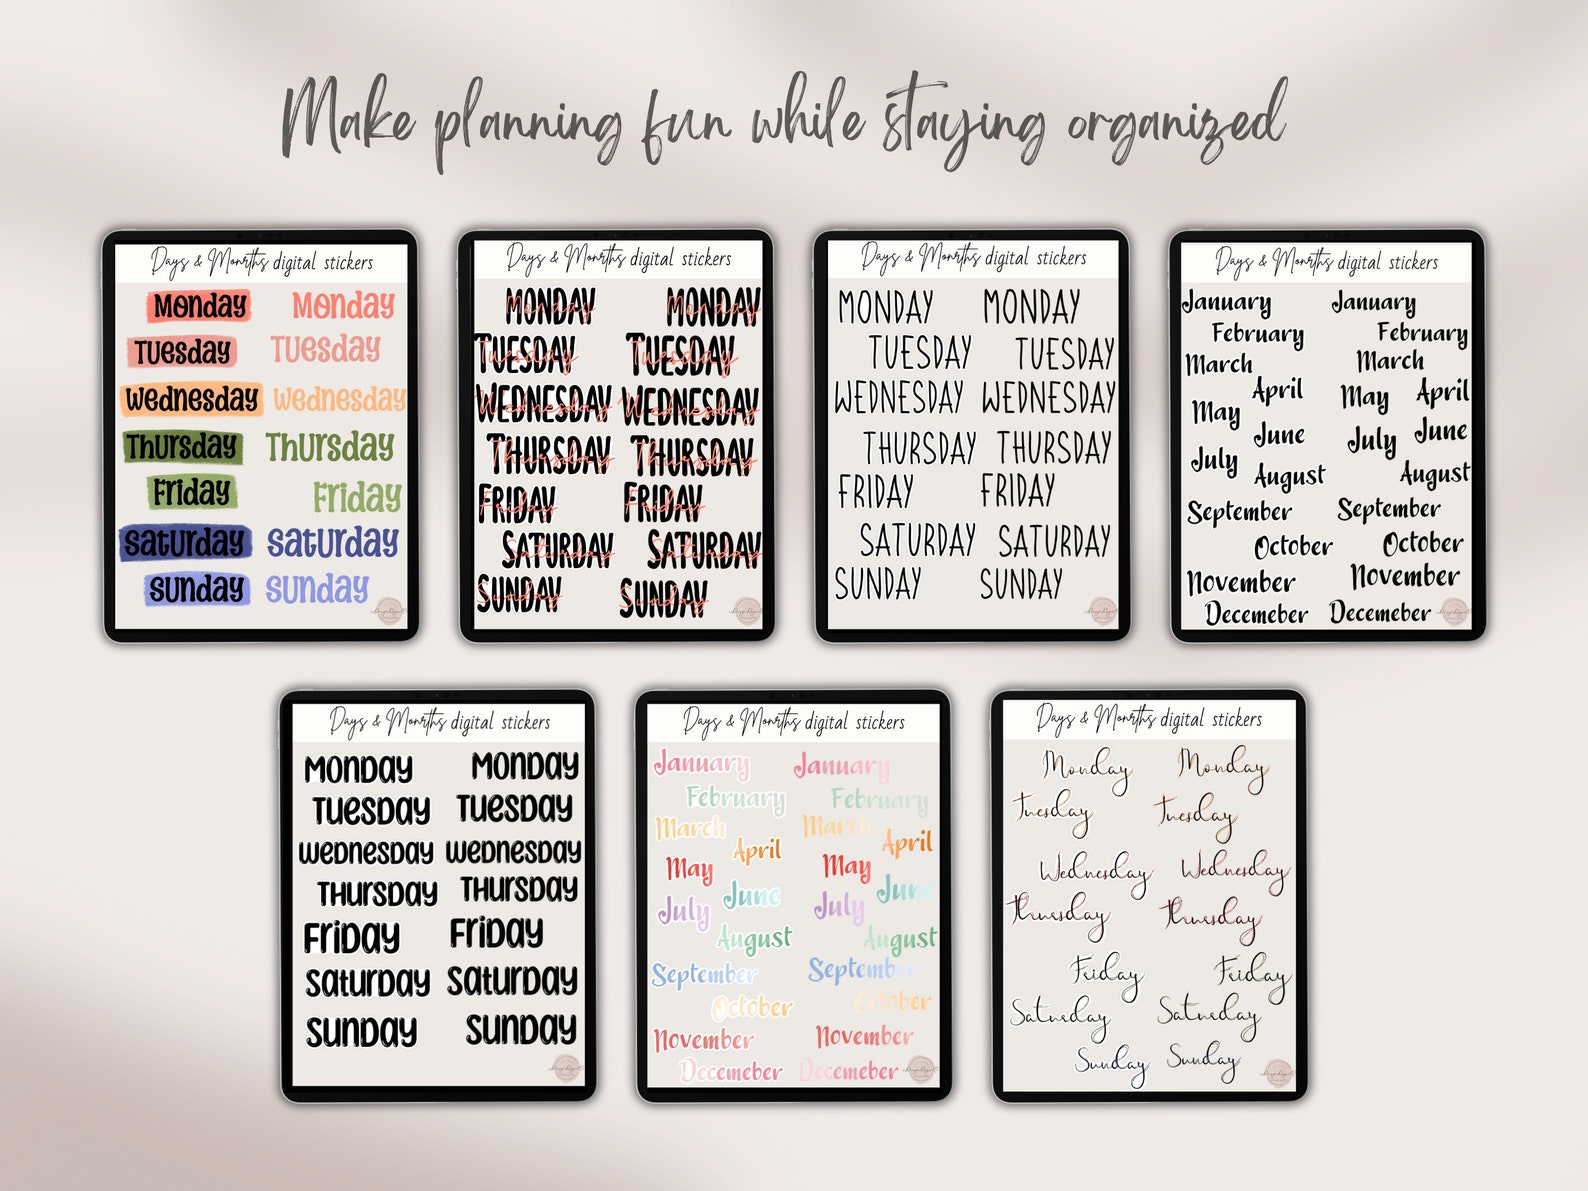 Make planning fun while staying organized
Days & Monrths digital stickers
Monday Monday
Tuesday Tuesday
Wednesday Wednesday
Thursday Thursday
Friday Friday
Saturday Saturday
Sunday Sunday
Days & Monrths digital stickers
MONDAY Monday MONDAY Monday
TUESDAY Tuesday TUESDAY Tuesday
WEDNESDAY Wednesday WEDNESDAY Wednesday
THURSDAY Thursday THURSDAY Thursday
FRIDAY Friday FRIDAY Friday
SATURDAY Saturday SATURDAY Saturday
SUNDAY Sunday SUNDAY Sunday
Days & Monrths digital stickers
MONDAY MONDAY
TUESDAY TUESDAY
WEDNESDAY WEDNESDAY
THURSDAY THURSDAY
FRIDAY FRIDAY
SATURDAY SATURDAY
SUNDAY SUNDAY
Days & Monrths digital stickers
January January
February February
March March
April April
May May
June June
July July
August August
September September
October October
November November
Decemeber Decemeber
Days & Monrths digital stickers
Monday Monday
Tuesday Tuesday
Wednesday Wednesday
Thursday Thursday
Friday Friday
Saturday Saturday
Sunday Sunday
Days & Monrths digital stickers
January January
February February
March March
April April
May May
June June
July July
August August
September September
October October
November November
Decemeber Decemeber
Days & Monrths digital stickers
Monday Monday
Tuesday Tuesday
Wednesday Wednesday
Thursday Thursday
Friday Friday
Saturday Saturday
Sunday Sunday